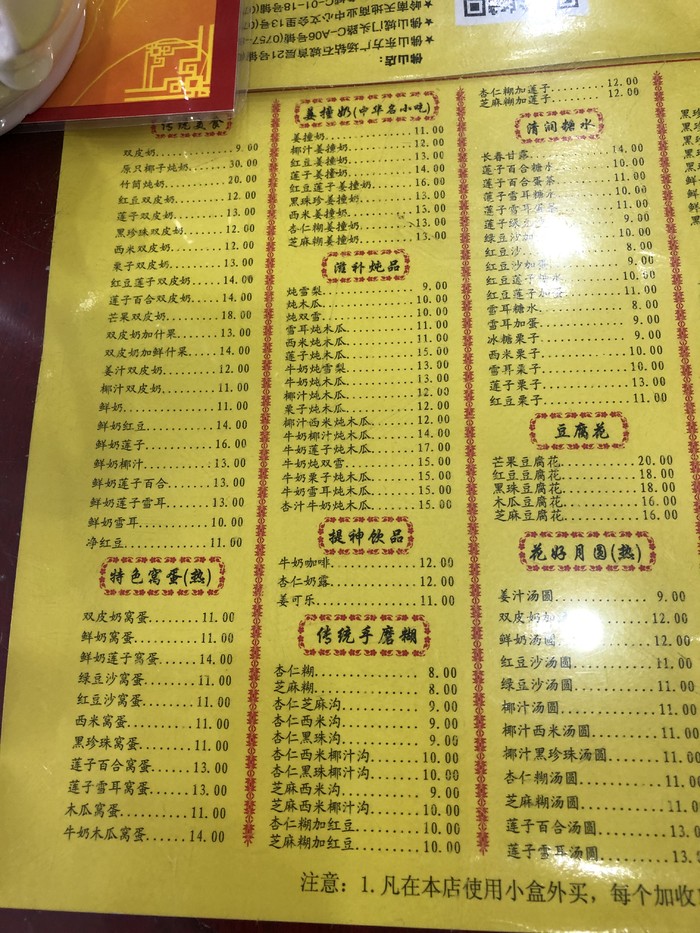 佛山店：
传统美食
双皮奶 9.00
原只椰子炖奶 30.00
竹筒炖奶 20.00
红豆双皮奶 12.00
莲子双皮奶 13.00
黑珍珠双皮奶 12.00
西米双皮奶 12.00
栗子双皮奶 13.00
红豆莲子双皮奶 14.00
莲子百合双皮奶 14.00
芒果双皮奶 18.00
双皮奶加什果 13.00
双皮奶加鲜什果 14.00
姜汁双皮奶 12.00
椰汁双皮奶 11.00
鲜奶 11.00
鲜奶红豆 14.00
鲜奶莲子 16.00
鲜奶椰汁 13.00
鲜奶莲子百合 13.00
鲜奶莲子雪耳 13.00
鲜奶雪耳 10.00
净红豆 11.00
特色窝蛋(热)
双皮奶窝蛋 11.00
鲜奶窝蛋 11.00
鲜奶莲子窝蛋 14.00
绿豆沙窝蛋 11.00
红豆沙窝蛋 11.00
西米窝蛋 11.00
黑珍珠窝蛋 11.00
莲子百合窝蛋 13.00
莲子雪耳窝蛋 13.00
木瓜窝蛋 11.00
牛奶木瓜窝蛋 14.00
姜撞奶(中华名小吃)
姜撞奶 11.00
椰汁姜撞奶 12.00
红豆姜撞奶 13.00
莲子姜撞奶 14.00
红豆莲子姜撞奶 16.00
黑珠珍姜撞奶 13.00
西米姜撞奶 13.00
杏仁糊姜撞奶 13.00
芝麻糊姜撞奶 13.00
滋补炖品
炖雪梨 9.00
炖木瓜 10.00
炖双雪 10.00
雪耳炖木瓜 11.00
西米炖木瓜 11.00
莲子炖木瓜 15.00
牛奶炖雪梨 13.00
牛奶炖木瓜 13.00
椰汁炖木瓜 12.00
栗子炖木瓜 12.00
椰汁西米炖木瓜 12.00
牛奶椰汁炖木瓜 14.00
牛奶莲子炖木瓜 17.00
牛奶炖双雪 15.00
牛奶栗子炖木瓜 15.00
牛奶雪耳炖木瓜 15.00
杏汁牛奶炖木瓜 15.00
提神饮品
牛奶咖啡 12.00
杏仁奶露 12.00
姜可乐 11.00
传统手磨糊
杏仁糊 8.00
芝麻糊 8.00
杏仁芝麻沟 9.00
杏仁西米沟 9.00
杏仁黑珠沟 9.00
杏仁西米椰汁沟 10.00
杏仁黑珠椰汁沟 10.00
芝麻西米沟 9.00
芝麻西米椰汁沟 10.00
杏仁糊加红豆 10.00
芝麻糊加红豆 10.00
杏仁糊加莲子 12.00
芝麻糊加莲子 12.00
清润糖水
长春甘露 14.00
莲子百合糖水 10.00
莲子百合蛋茶 11.00
莲子雪耳糖水 10.00
莲子雪耳蛋茶 11.00
莲子绿豆 9.00
绿豆沙加 10.00
红豆沙 8.00
红豆沙加蛋 9.00
红豆莲子糖水 10.00
红豆莲子加蛋 11.00
雪耳糖水 8.00
雪耳加蛋 9.00
冰糖栗子 9.00
西米栗子 10.00
雪耳栗子 10.00
莲子栗子 13.00
红豆栗子 11.00
豆腐花
芒果豆腐花 20.00
红豆豆腐花 18.00
黑珠豆腐花 18.00
木瓜豆腐花 16.00
芝麻豆腐花 16.00
花好月圆(热)
姜汁汤圆 9.00
双皮奶加 12.00
鲜奶汤圆 12.00
红豆沙汤圆 11.00
绿豆沙汤圆 11.00
椰汁汤圆 11.00
椰汁西米汤圆 12.00
椰汁黑珍珠汤圆 12.00
杏仁糊汤圆 11.00
芝麻糊汤圆 11.00
莲子百合汤圆 13.0
莲子雪耳汤圆 13.
注意：1.凡在本店使用小盒外买，每个加收